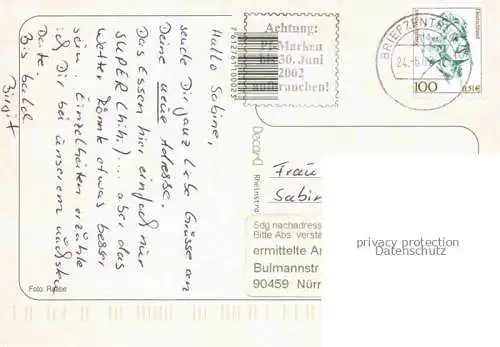 Hallo Sabine,
sende Dir ganz liebe Grüsse an
Deine neue Adresse.
Das Essen hier einfach nur
SUPER (hihi)... aber das
Wetter könnte etwas besser
sein. Einzelheiten erzähle
ich Dir bei unserem nächsten
Date.
Bis balde
Birgit
Achtung:
Pf-Marken
bis 30. Juni
2002
aufbrauchen!
BRIEFZENTRUM
24.-6.
Deutschland
100
0,51€
Frau
Sabin
Sdg nachadress
Bitte Abs verstä
ermittelte An
Bulmannstr
90459 Nürn
privacy protection
Datenschutz
Foto: